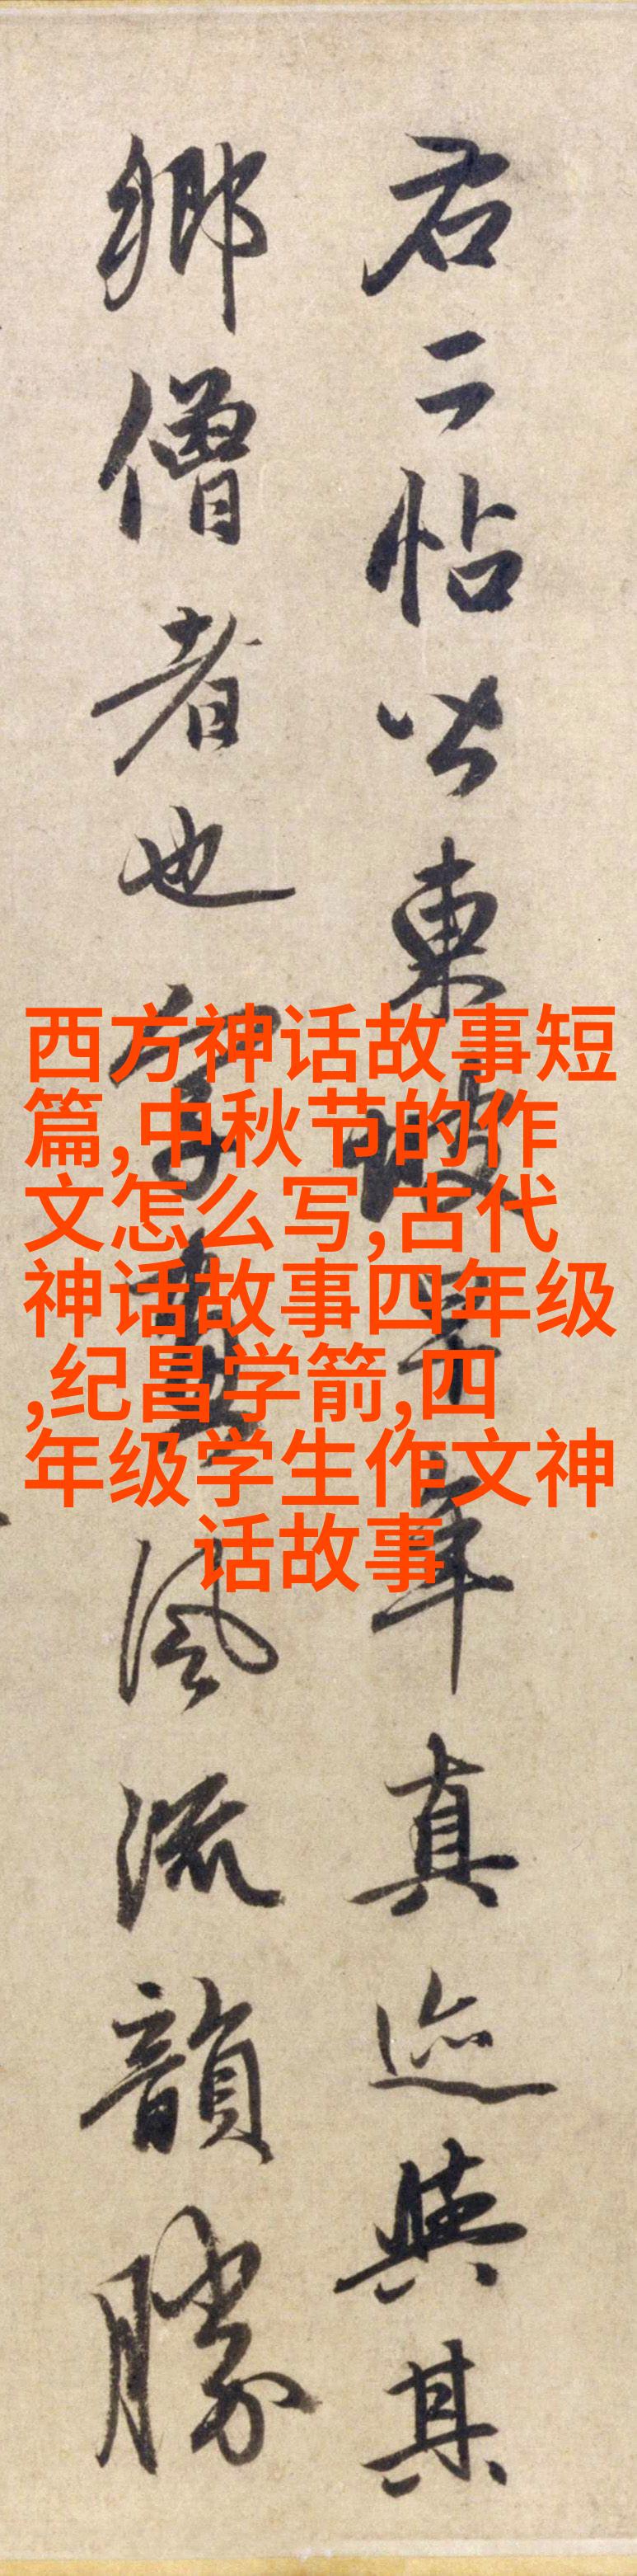 右二帖皆東坡早年真迹與其
鄉僧者也字畫風流韻勝
西方神话故事短
篇,中秋节的作
文怎么写,古代
神话故事四年级
,纪昌学箭,四
年级学生作文神
话故事